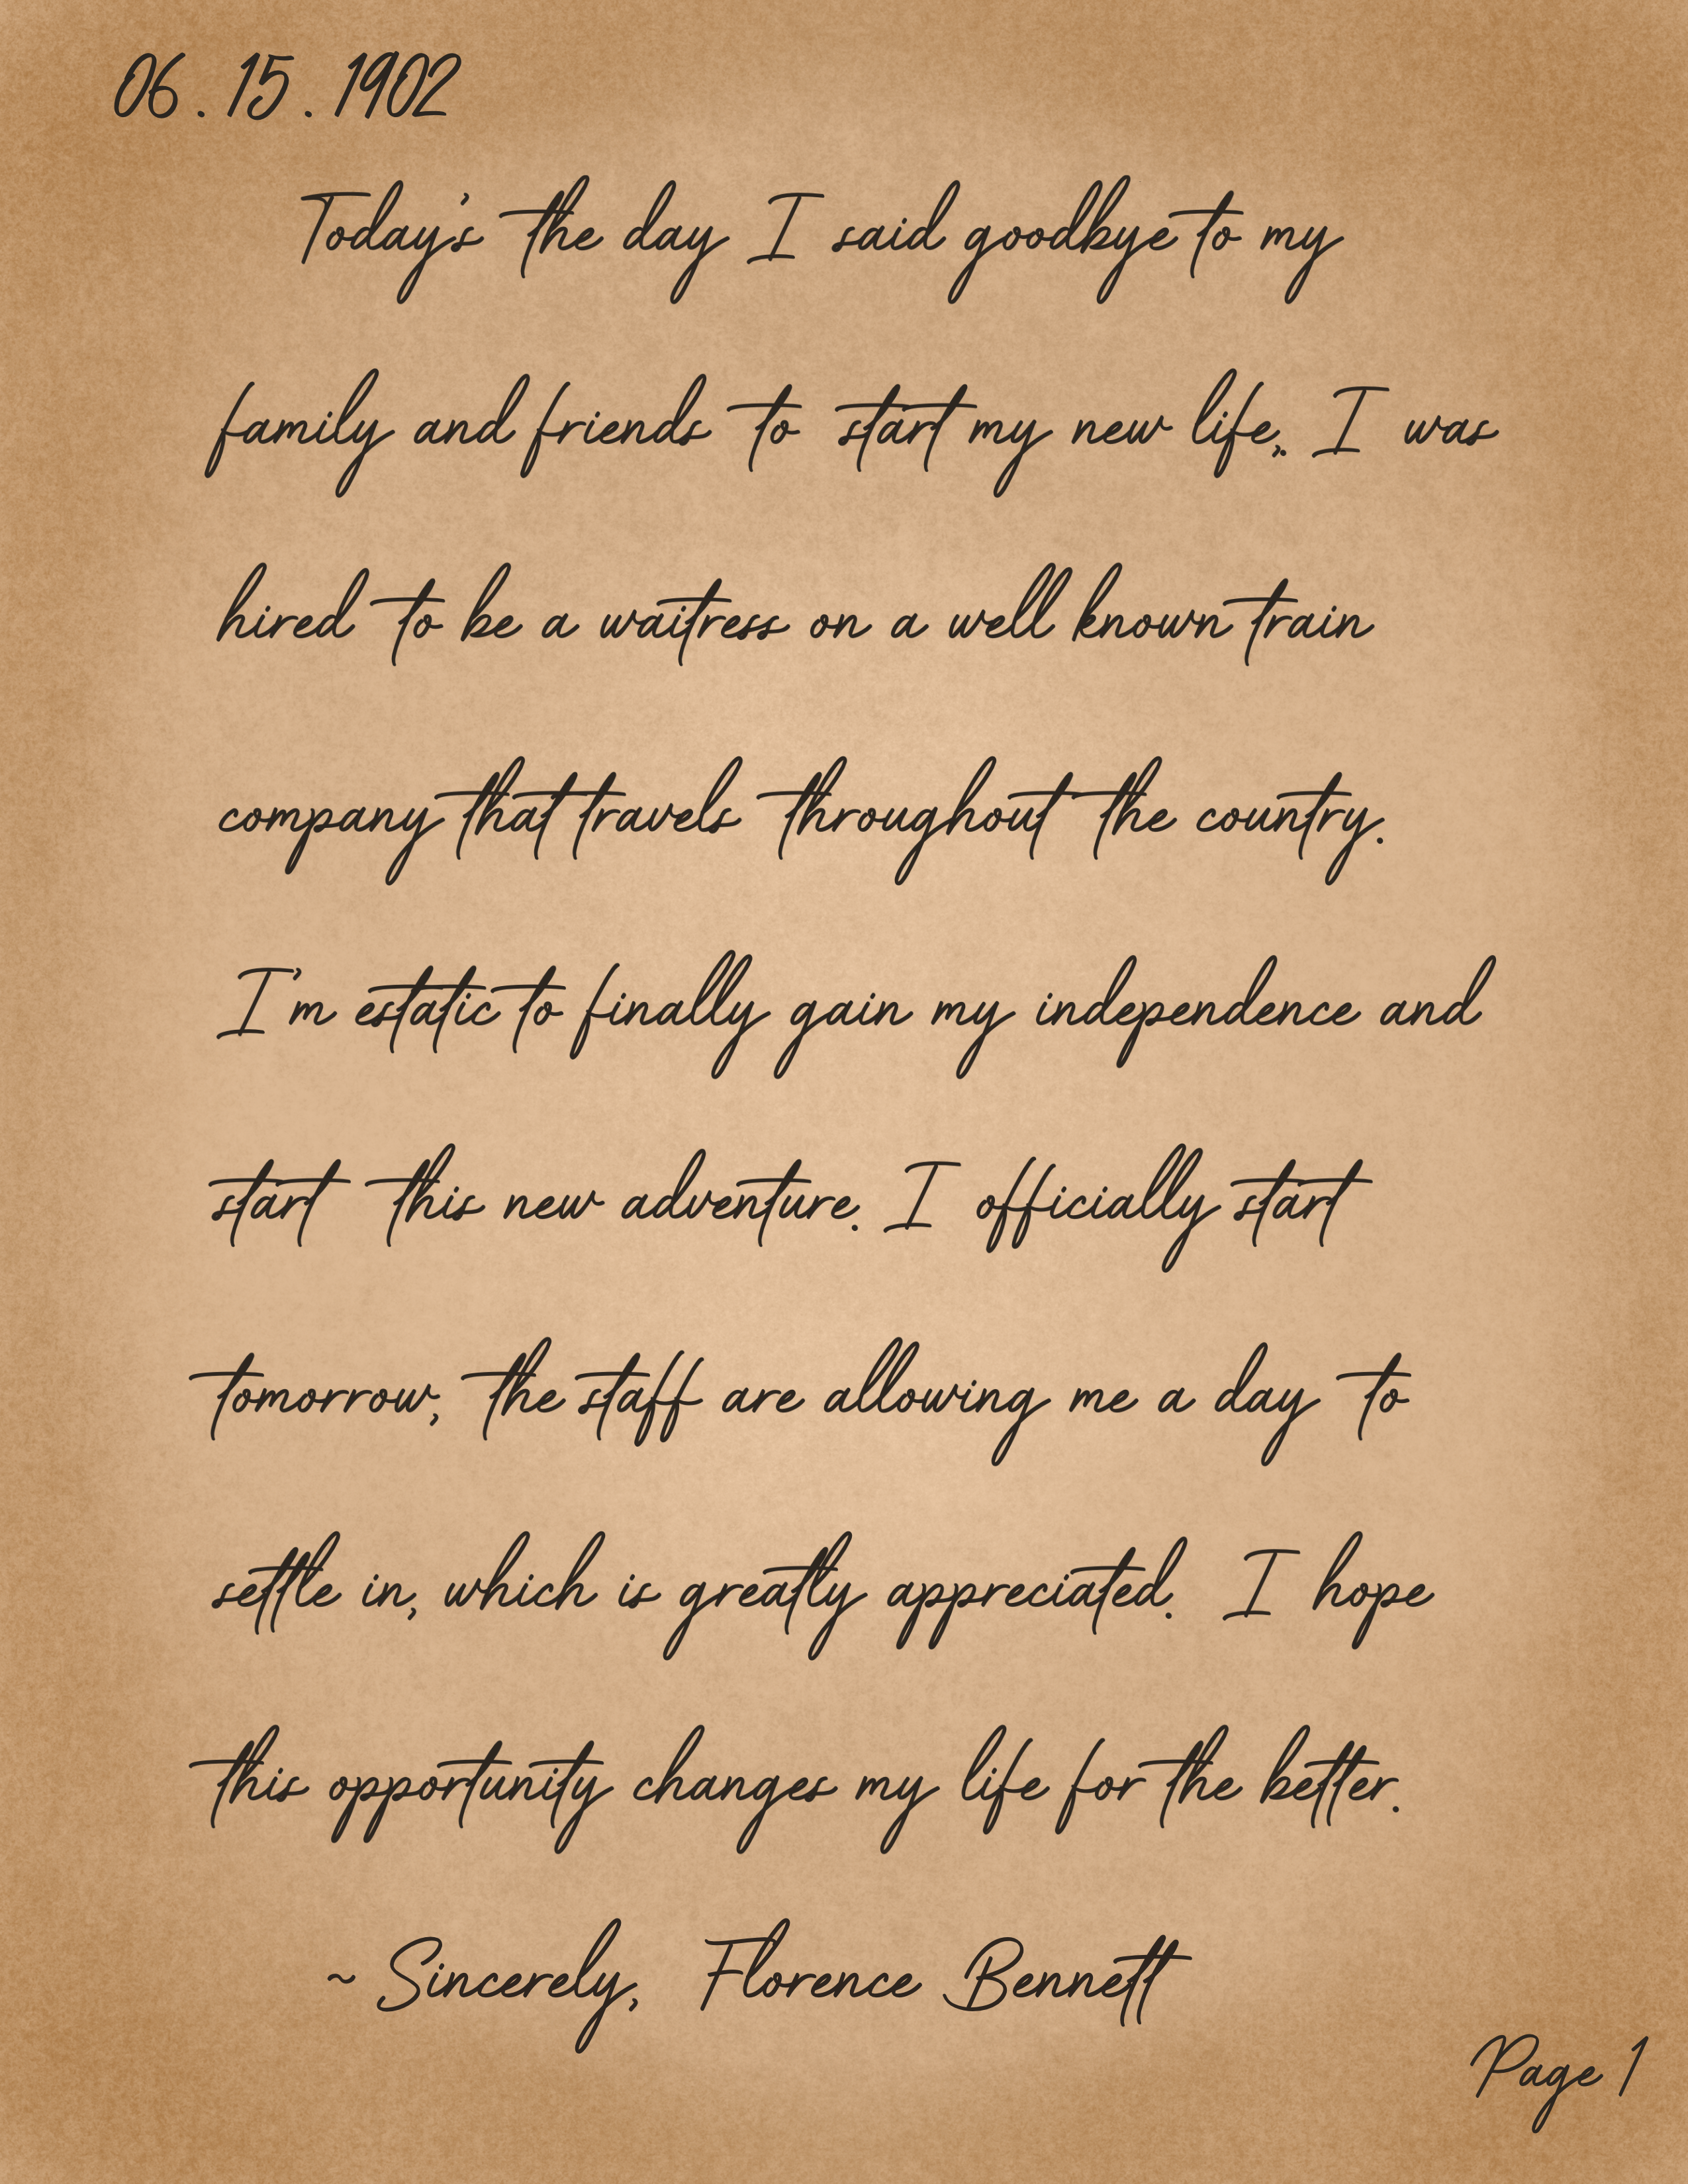 06.15.1902
Today's the day I said goodbye to my
family and friends to start my new life,. I was
hired to be a waitress on a well known train
company that travels throughout the country.
I'm estatic to finally gain my independence and
start this new adventure. I officially start
tomorrow, the staff are allowing me a day to
settle in, which is greatly appreciated. I hope
this opportunity changes my life for the better.
~ Sincerely, Florence Bennett
Page 1